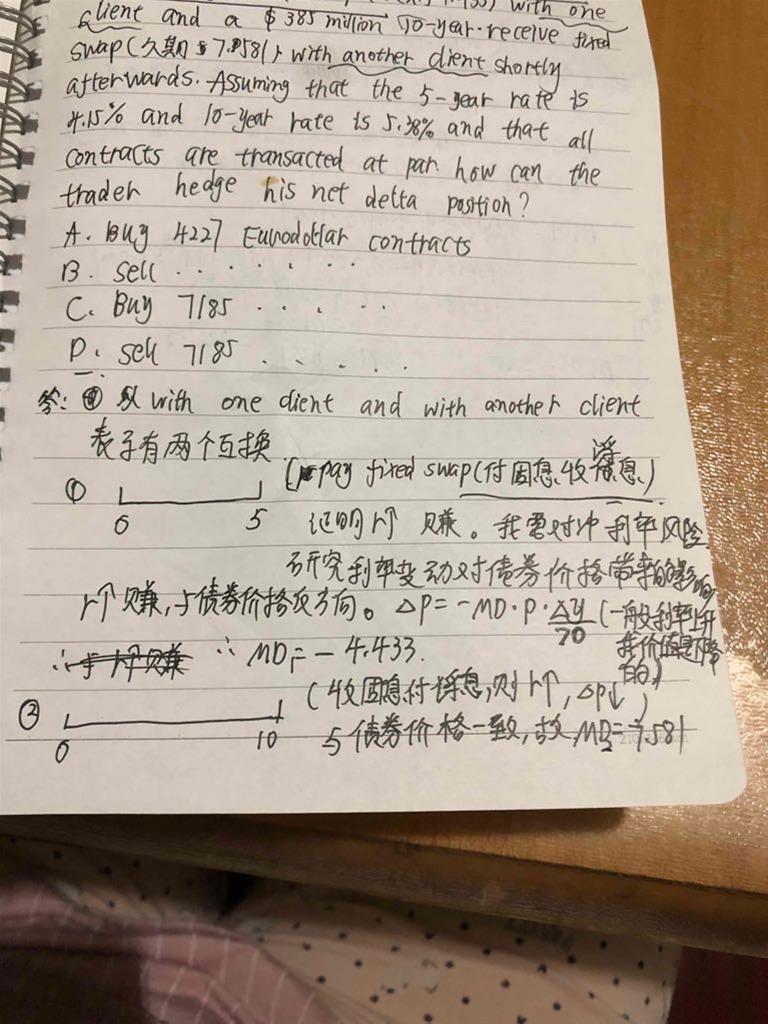 with one
client and a $ 385 million 10-year receive fixed
swap (久期 7.581) with another client shortly
afterwards. Assuming that the 5-year rate is
4.15% and 10-year rate is 5.38% and that all
contracts are transacted at par. how can the
trader hedge his net delta position?
A. Buy 4227 Eurodollar contracts
B. sell . . . . . . .
C. Buy 7185 . . . . .
D. sell 7185 . . . . .
答: with one client and with another client
表示有两个互换
① (pay fixed swap(付固息,收浮息)
0 5 证明r个赚。我需对冲利率风险
研究利率变动对债券价格带来的影响
r个赚,与债券价格反方向。 ΔP=-MD·P·Δy/70 (一般利率上升
∴ MD₁=-4.433. 我价值是下降
的)
② (收固息付浮息,则r个,ΔP↓)
0 10 与债券价格一致,故MD₂=7.581